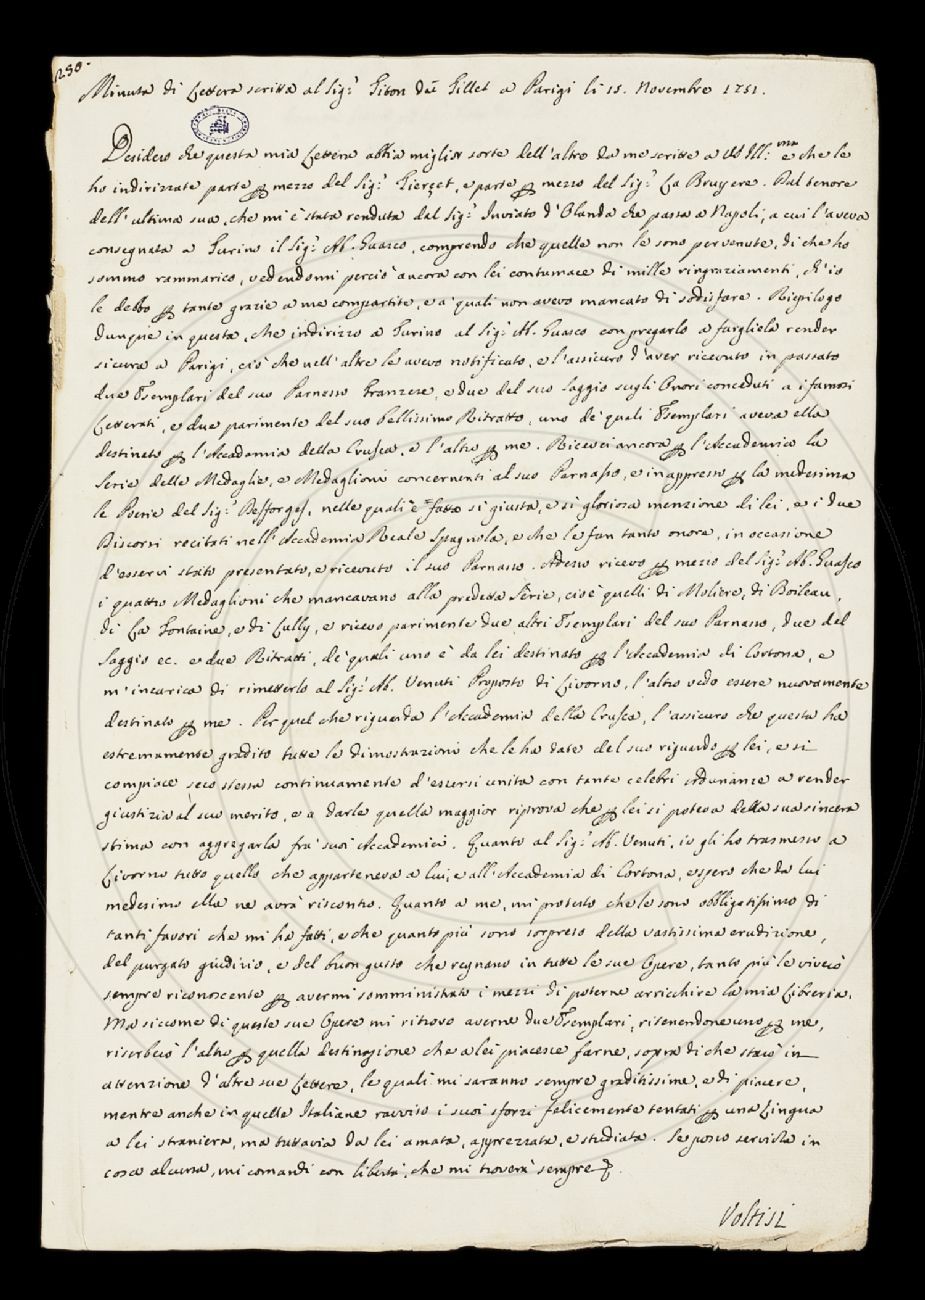 280.
Minuta di Lettera scritta al Sig.r Titon du Tillet a Parigi li 15. Novembre 1751.
Desidero che questa mia Lettera abbia miglior sorte dell'altre da me scritte a VS Ill:ma e che le
ho indirizzate parte p mezzo del Sig.r Gierçet, e parte p mezzo del Sig.r La Bruyere. Dal tenore
dell'ultima sua, che mi è stata renduta dal Sig.r Inviato d'Olanda che passa a Napoli, a cui l'aveva
consegnata a Turino il Sig.r Ab. Guasco, comprendo che quelle non le sono pervenute, di che ho
sommo rammarico, vedendomi perciò ancora con lei contumace di mille ringraziamenti, ch'io
le debbo p tante grazie a me compartite, e a' quali non avevo mancato di sodisfare. Riepilogo
dunque in questa, che indirizzo a Turino al Sig.r Ab. Guasco con pregarlo a fargliela render
sicura a Parigi, ciò che nell'altre le avevo notificato, e l'assicuro d'aver ricevuto in passato
due Esemplari del suo Parnasso Franzese, e due del suo Saggio sugli Onori conceduti a i famosi
Letterati, e due parimente del suo bellissimo Ritratto, uno de' quali Esemplari aveva ella
destinato p l'Accademia della Crusca, e l'altro p me. Ricevei ancora p l'Accademia la
Serie delle Medaglie, e Medaglioni concernenti al suo Parnasso, e in appresso p la medesima
le Poesie del Sig.r Desforges, nelle quali è fatta si giusta, e si gloriosa menzione di lei, e i due
Discorsi recitati nell'Accademia Reale Spagnola, e che le fan tanto onore, in occasione
d'esservi stato presentato, e ricevuto il suo Parnasso. Adesso ricevo p mezzo del Sig.r Ab. Guasco
i quattro Medaglioni che mancavano alla predetta Serie, cioè quelli di Moliere, di Boileau,
di La Fontaine, e di Lully, e ricevo parimente due altri Esemplari del suo Parnasso, due del
Saggio ec. e due Ritratti, de' quali uno è da lei destinato p l'Accademia di Cortona, e
m'incarica di rimetterlo al Sig.r Ab. Venuti Proposto di Livorno, l'altro vedo essere nuovamente
destinato p me. Per quel che riguarda l'Accademia della Crusca, l'assicuro che questa ha
estremamente gradito tutte le dimostrazioni che le ha date del suo riguardo p lei, e si
compiace seco stessa continuamente d'essersi unita con tante celebri Adunanze a render
giustizia al suo merito, e a darle quella maggior riprova che p lei si poteva della sua sincera
stima con aggregarla fra' suoi Accademici. Quanto al Sig.r Ab. Venuti, io gli ho trasmesso a
Livorno tutto quello che apparteneva a lui, e all'Accademia di Cortona, e spero che da lui
medesimo ella ne avrà riscontro. Quanto a me, mi protesto che le sono obbligatissimo di
tanti favori che mi ha fatti, e che quanto più sono sorpreso della vastissima erudizione,
del purgato giudizio, e del buon gusto che regnano in tutte le sue Opere, tanto più le viverò
sempre riconoscente p avermi somministrato i mezzi di poterne arricchire la mia Libreria.
Ma siccome di queste sue Opere mi ritrovo averne due Esemplari, ritenendone uno p me,
riserberò l'altro p quella destinazione che a lei piacesse farne, sopra di che starò in
attenzione d'altre sue Lettere, le quali mi saranno sempre graditissime, e di piacere,
mentre anche in quelle Italiane ravviso i suoi sforzi felicemente tentati p una Lingua
a lei straniera, ma tuttavia da lei amata, apprezzata, e studiata. Se posso servirla in
cosa alcuna, mi comandi con libertà, che mi troverà sempre
Voltisi